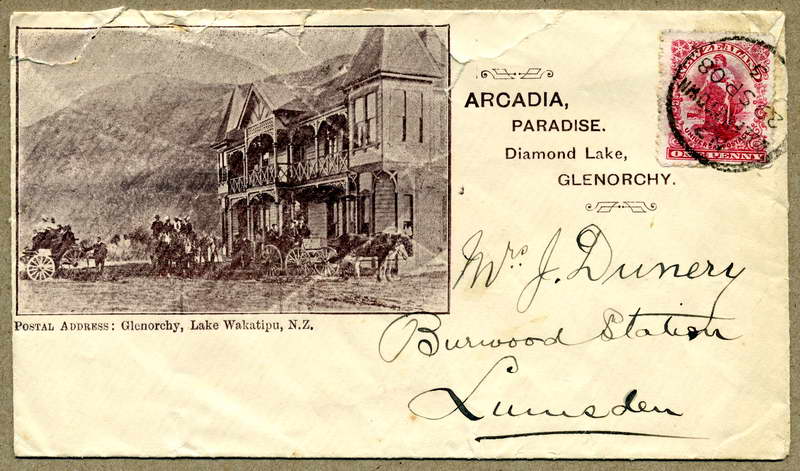 ARCADIA,
PARADISE.
Diamond Lake,
GLENORCHY.
NEW ZEALAND
ONE PENNY
20 SP 08
POSTAL ADDRESS: Glenorchy, Lake Wakatipu, N.Z.
Mrs J. Dunery
Burwood Station
Lumsden